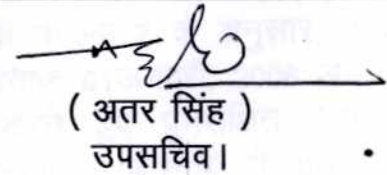 ( अतर सिंह )
उपसचिव।